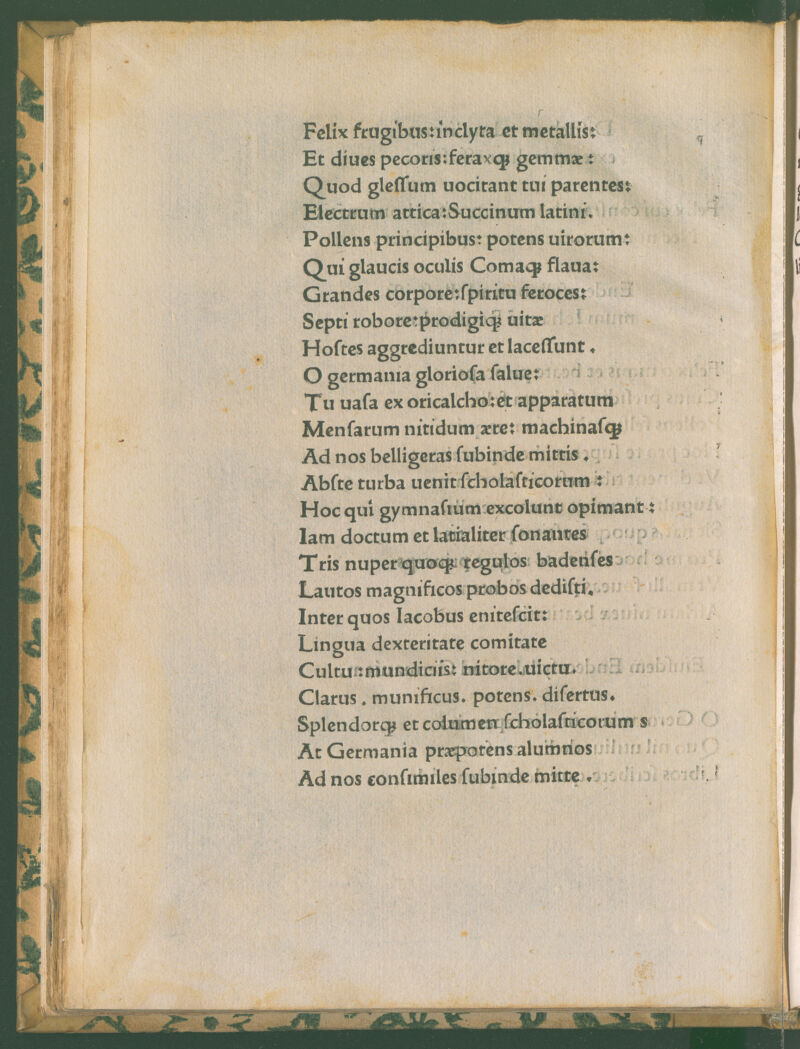 Felix frugibus:inclyta et metallis:
Et diues pecoris:feraxqꝫ gemmæ :
Quod gleſſum uocitant tui parentes:
Electrum attica:Succinum latini.
Pollens principibus: potens uirorum:
Qui glaucis oculis Comaqꝫ flaua:
Grandes corpore:ſpiritu feroces:
Septi robore:prodigiqꝫ uitæ
Hoſtes aggrediuntur et laceſſunt .
O germania glorioſa ſalue:
Tu uaſa ex oricalcho:et apparatum
Menſarum nitidum ære: machinaſqꝫ
Ad nos belligeras ſubinde mittis .
Abſte turba uenit ſcholaſticorum :
Hoc qui gymnaſium excolunt opimant :
Iam doctum et latialiter ſonantes
Tris nuper quoqꝫ regulos badenſes
Lautos magnificos probos dediſti.
Inter quos Iacobus eniteſcit:
Lingua dexteritate comitate
Cultu:mundiciis: nitore.uictu.
Clarus . munificus. potens. diſertus.
Splendorqꝫ et columen ſcholaſticorum s
At Germania præpotens alumnos
Ad nos conſimiles ſubinde mitte .